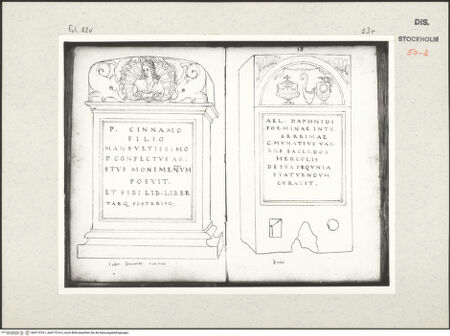 fol. 12v
13r
DIS.
STOCKHOLM
50-2
P. CINNAMO
FILIO
MANSVETISSIMO
P. CONFECTVS AR:
STVS MONIMENTVM
POSVIT.
ET SIBI LIB. LIBER
TABQ. POSTERISQ.
13
AEL. DAPHNIDI
FOEMINAE INTE
GERRIMAE
C. MVNATIVS VAL
ENS SACERDOS
HERCVLIS
DE SVA PEQVNIA
STATVENDVM
CVRAVIT.